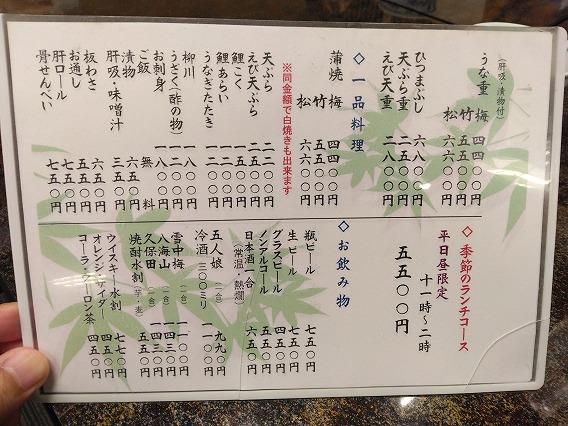 うな重
（肝吸・漬物付）
梅　四四〇〇円
竹　五五〇〇円
松　六六〇〇円
ひつまぶし　六八〇〇円
天ぷら重　二五〇〇円
えび天重　二八〇〇円
◇一品料理
蒲焼　梅　四四〇〇円
竹　五五〇〇円
松　六六〇〇円
※同金額で白焼きも出来ます
天ぷら　二二〇〇円
えび天ぷら　二五〇〇円
鯉こく
鯉あらい
うなぎたたき　一二〇〇円
柳川　一八〇〇円
うざく（酢の物）　一二〇〇円
お刺身　一八〇〇円
ご飯　無料
漬物　六五〇円
肝吸・味噌汁　三五〇円
板わさ　六五〇円
お通し　五五〇円
肝ロール　七五〇円
骨せんべい　七五〇円
◇季節のランチコース
平日昼限定
十一時～二時
五五〇〇円
◇お飲み物
瓶ビール　七五〇円
生ビール　七五〇円
グラスビール　五五〇円
ノンアルコール　五五〇円
日本酒一合　六五〇円
（常温・熱燗）
五人娘　九九〇円
冷酒　三〇〇ミリ　一一〇〇円
雪中梅（一合）　一一〇〇円
八海山（一合）　一四三〇円
久保田（一合）　一四三〇円
焼酎水割（芋・麦）　五五〇円
ウイスキー水割　七七〇円
オレンジ・サイダー　四五〇円
コーラ・ウーロン茶　四五〇円